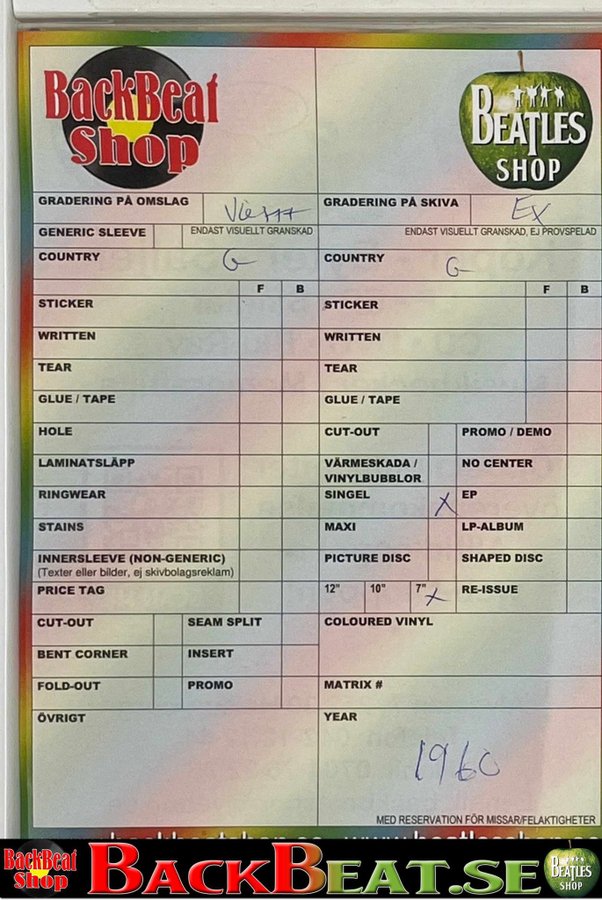 BackBeat Shop
BEATLES SHOP
GRADERING PÅ OMSLAG
GRADERING PÅ SKIVA Ex
GENERIC SLEEVE ENDAST VISUELLT GRANSKAD
ENDAST VISUELLT GRANSKAD, EJ PROVSPELAD
COUNTRY G
COUNTRY G
F B
F B
STICKER
STICKER
WRITTEN
WRITTEN
TEAR
TEAR
GLUE / TAPE
GLUE / TAPE
HOLE
CUT-OUT PROMO / DEMO
LAMINATSLÄPP
VÄRMESKADA / NO CENTER
VINYLBUBBLOR
RINGWEAR
SINGEL X EP
STAINS
MAXI LP-ALBUM
INNERSLEEVE (NON-GENERIC)
(Texter eller bilder, ej skivbolagsreklam)
PICTURE DISC SHAPED DISC
PRICE TAG
12" 10" 7" X RE-ISSUE
CUT-OUT SEAM SPLIT
COLOURED VINYL
BENT CORNER INSERT
FOLD-OUT PROMO
MATRIX #
ÖVRIGT
YEAR
1960
MED RESERVATION FÖR MISSAR/FELAKTIGHETER
BackBeat Shop BACKBEAT.SE BEATLES SHOP